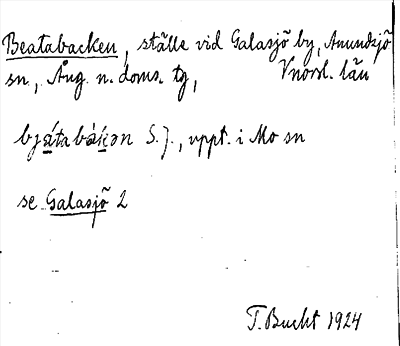 Beatabacken, ställe vid Galasjö by, Anundsjö
sn, Ång. n. doms. tg, Vnorrl. län
bjátabàkən S.J., uppt. i Mo sn
se Galasjö 2
T. Bucht 1924